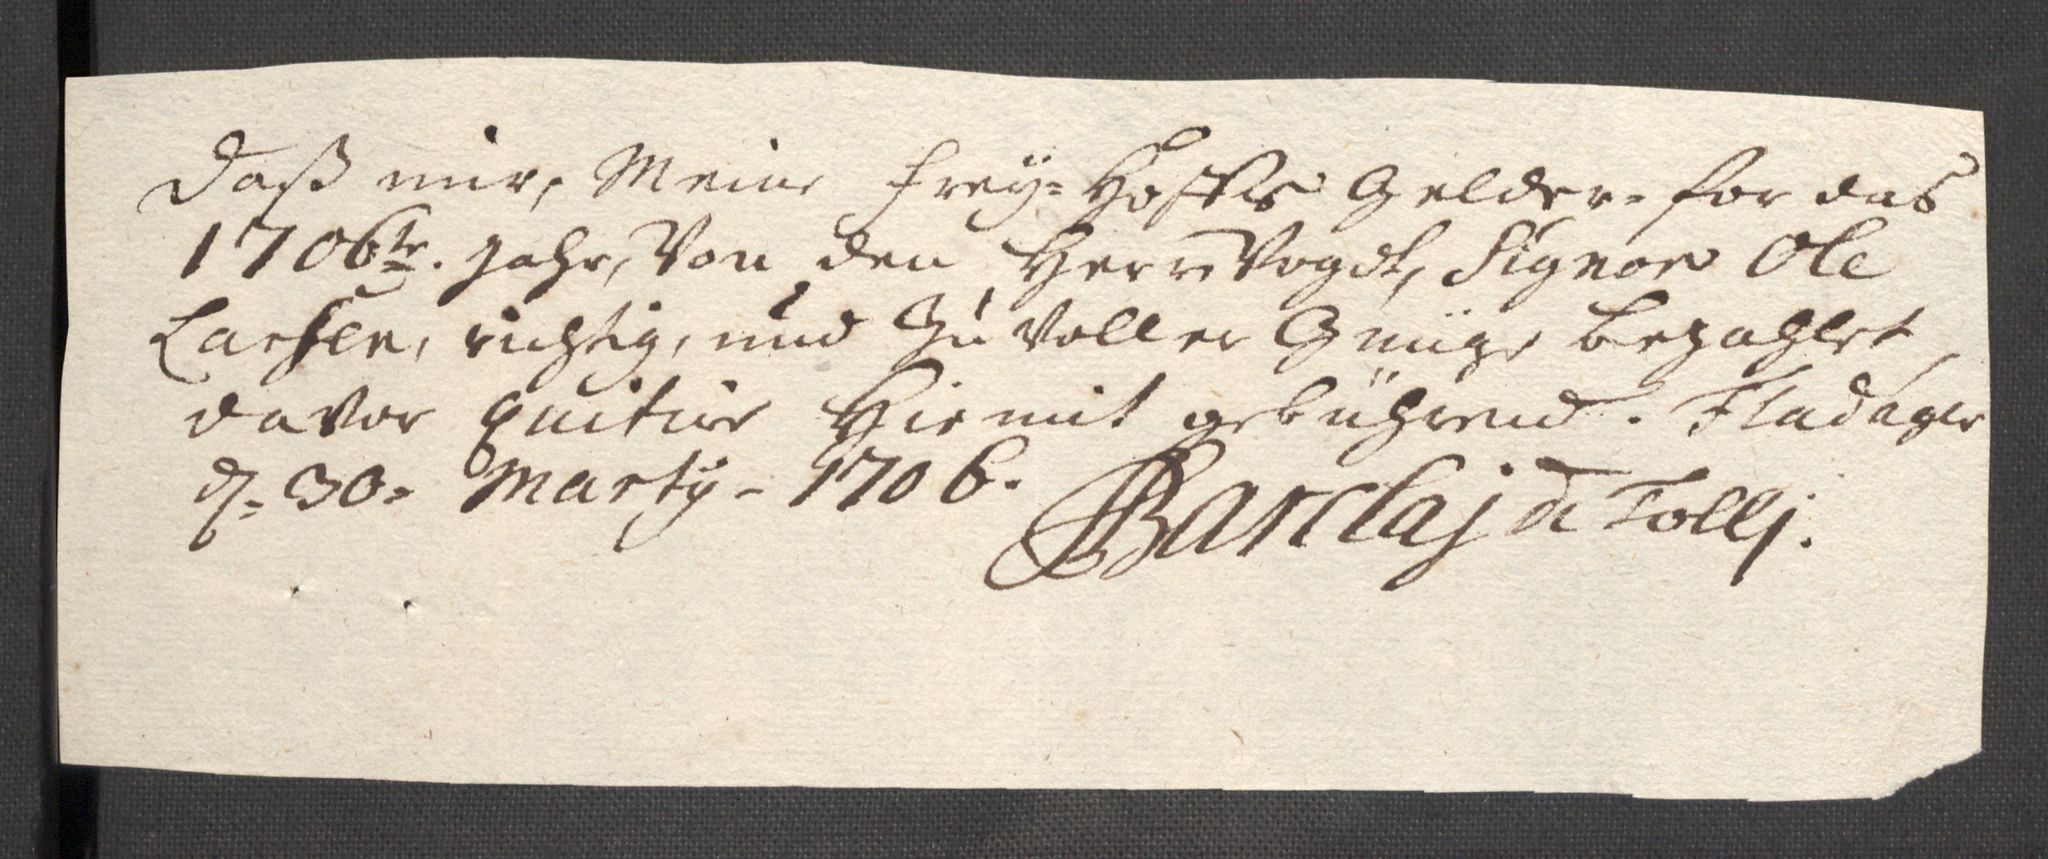 Daß mir, Meine Frey-Hoffs Gelder for das
1706te. Jahr, Von den Herrn Vogdt, Signor Ole
Larsen, richtig, und Zu Voller Gnüge bezahlet,
davor quitire Hiemit gebührend. Fladager
d. 30. Marty - 1706. Barclaj de Tollj.